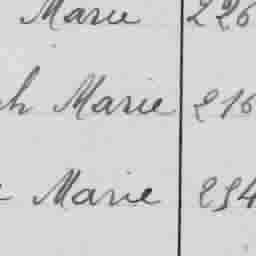 Marie 226
h Marie 216
Marie 254